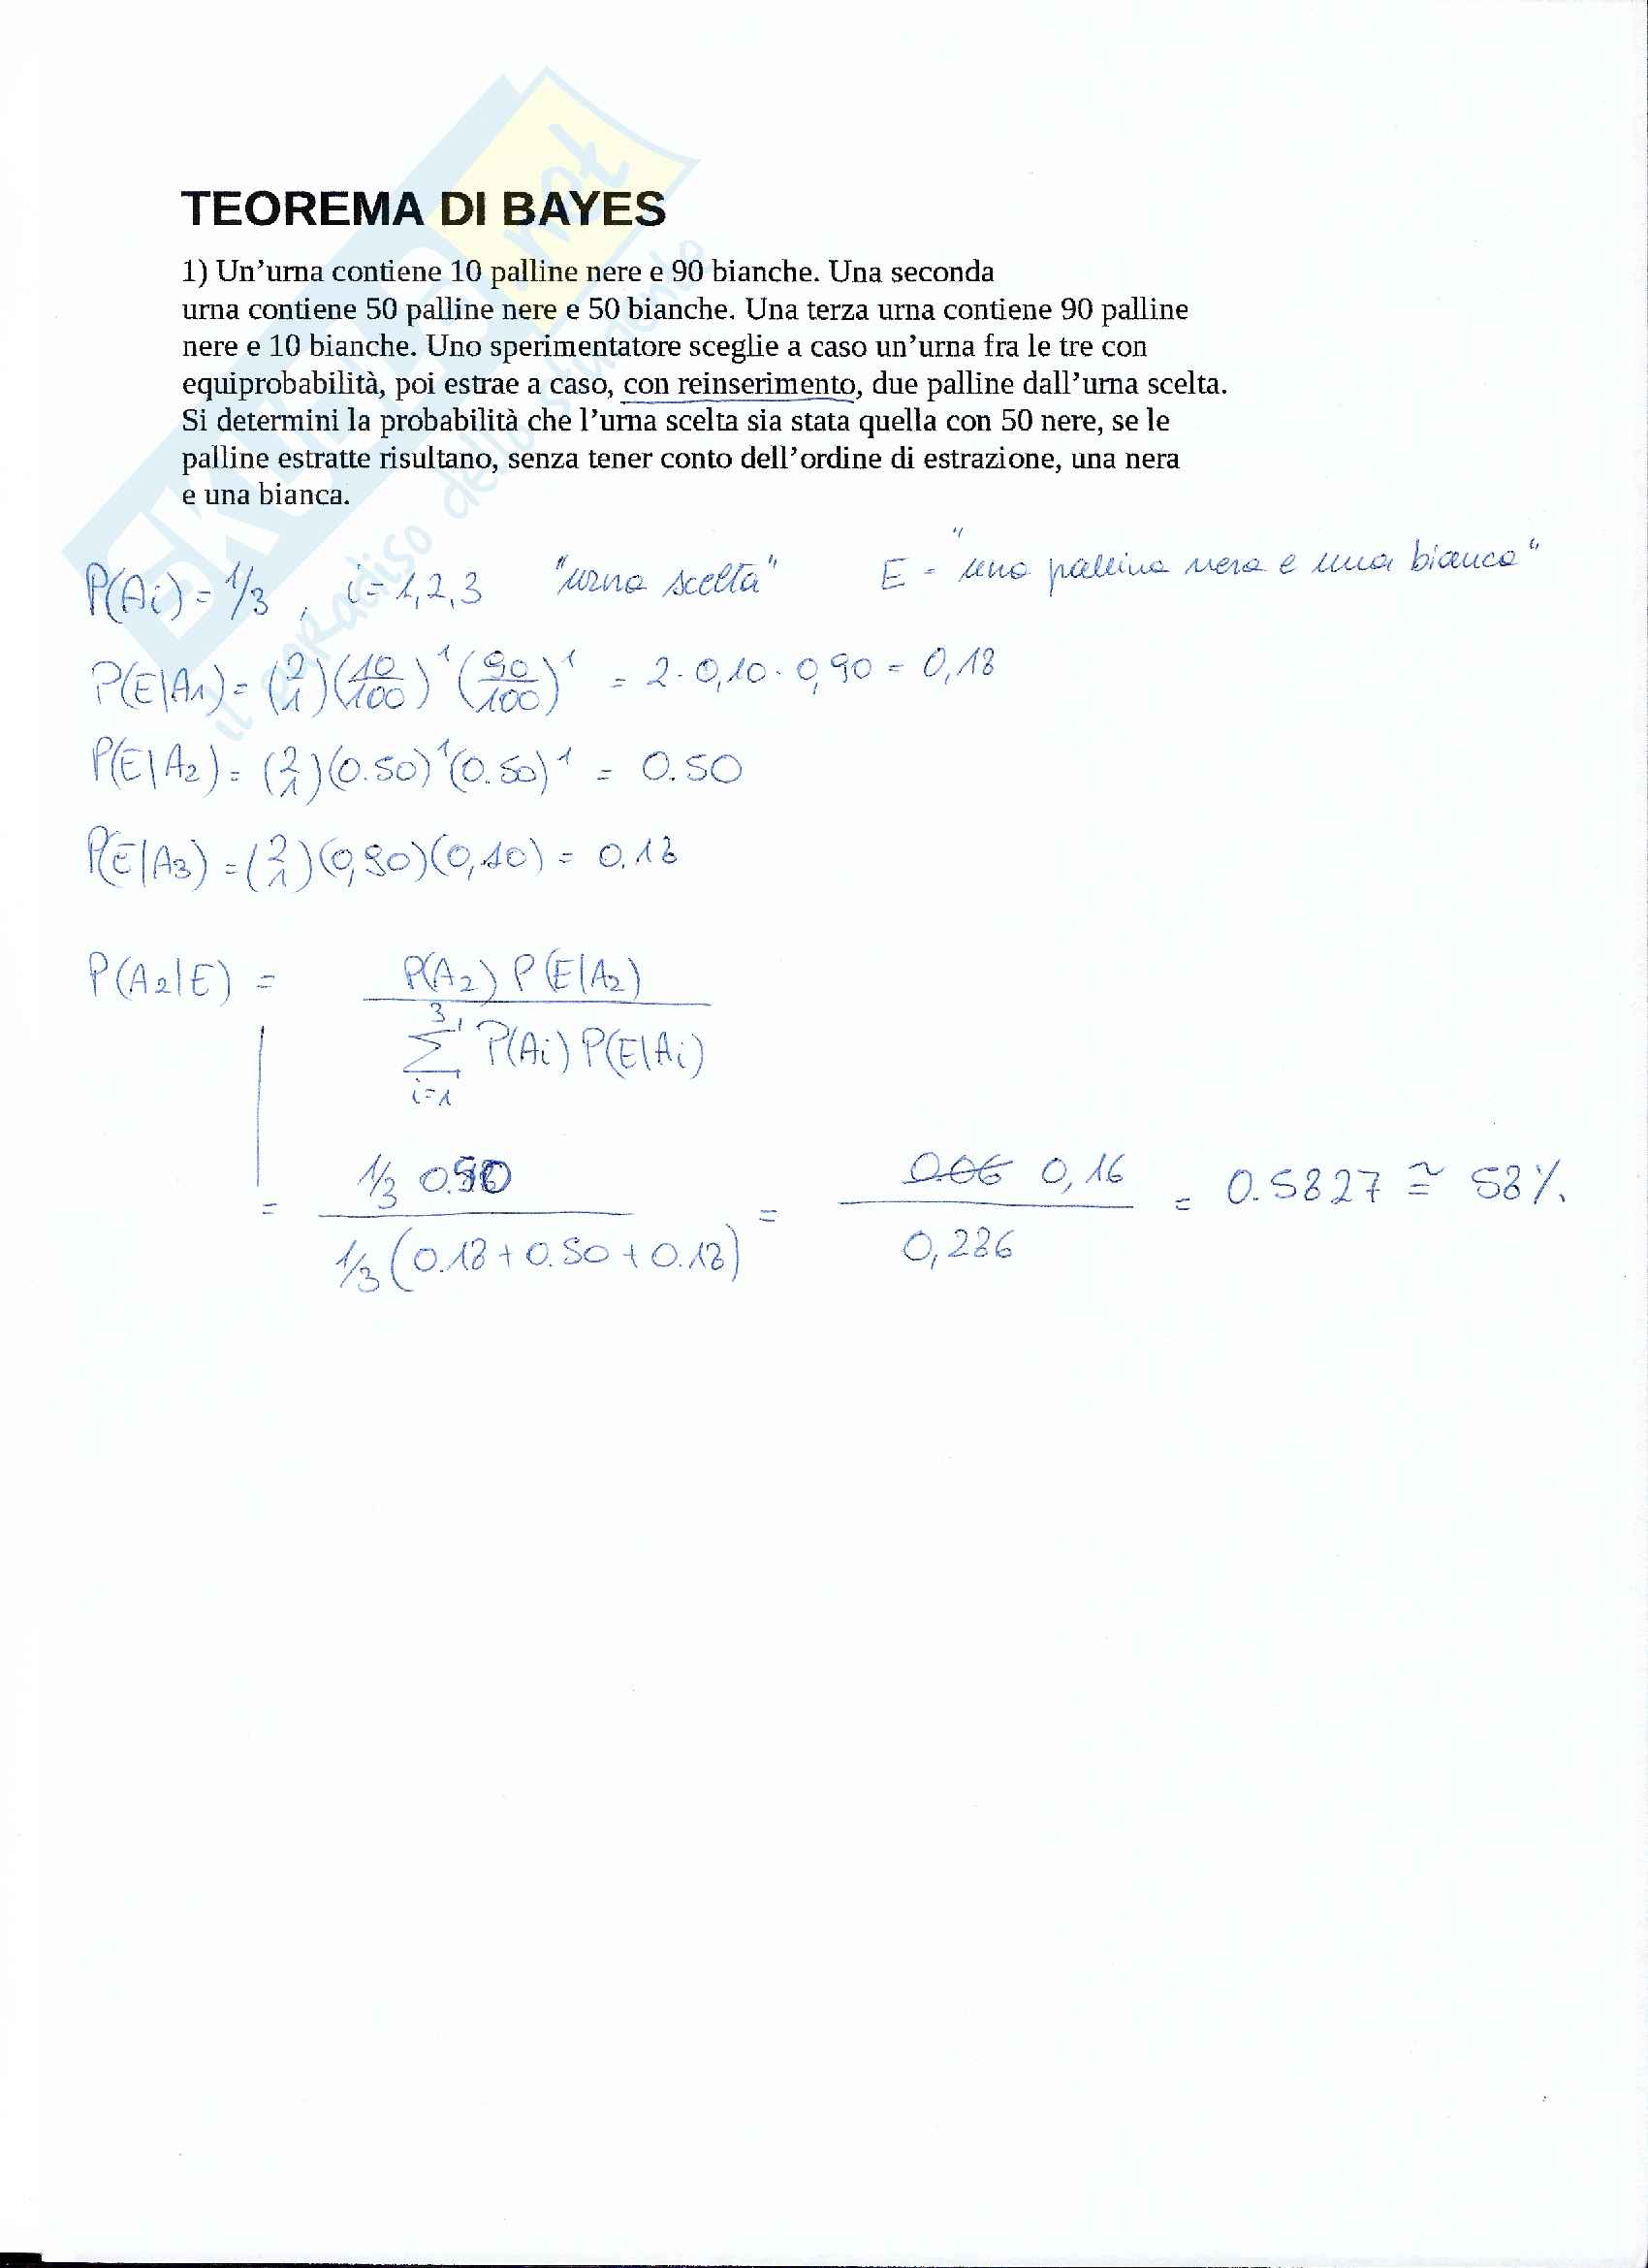 TEOREMA DI BAYES
1) Un’urna contiene 10 palline nere e 90 bianche. Una seconda
urna contiene 50 palline nere e 50 bianche. Una terza urna contiene 90 palline
nere e 10 bianche. Uno sperimentatore sceglie a caso un’urna fra le tre con
equiprobabilità, poi estrae a caso, con reinserimento, due palline dall’urna scelta.
Si determini la probabilità che l’urna scelta sia stata quella con 50 nere, se le
palline estratte risultano, senza tener conto dell’ordine di estrazione, una nera
e una bianca.
P(Ai) = 1/3 , i = 1,2,3 "urna scelta" E = "una pallina nera e una bianca"
P(E|A1) = (2 1)(10/100)^1 (90/100)^1 = 2 · 0,10 · 0,90 = 0,18
P(E|A2) = (2 1)(0.50)^1(0.50)^1 = 0.50
P(E|A3) = (2 1)(0,90)(0,10) = 0.18
P(A2|E) = P(A2) P(E|A2)
3
Σ P(Ai) P(E|Ai)
i=1
= 1/3 0.50 = 0.06 0,16 = 0.5827 ≅ 58%.
1/3 (0.18 + 0.50 + 0.18) 0,286
SKUOLA.net
il paradiso dello studente